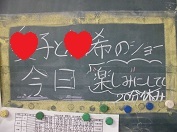 子と希のショー
今日 楽しみにしてて
20分休み